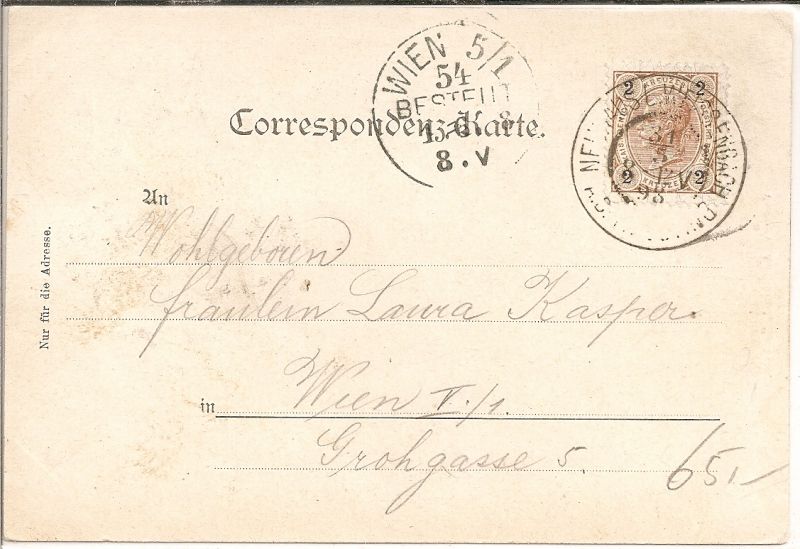 WIEN 5/1
54
BESTELLT
8.V
2 KREUZER 2
2 2
Correspondenz-Karte.
An
Wohlgeboren
Fräulein Laura Kasper.
in Wien V./1.
Grohgasse 5.
65.-
Nur für die Adresse.